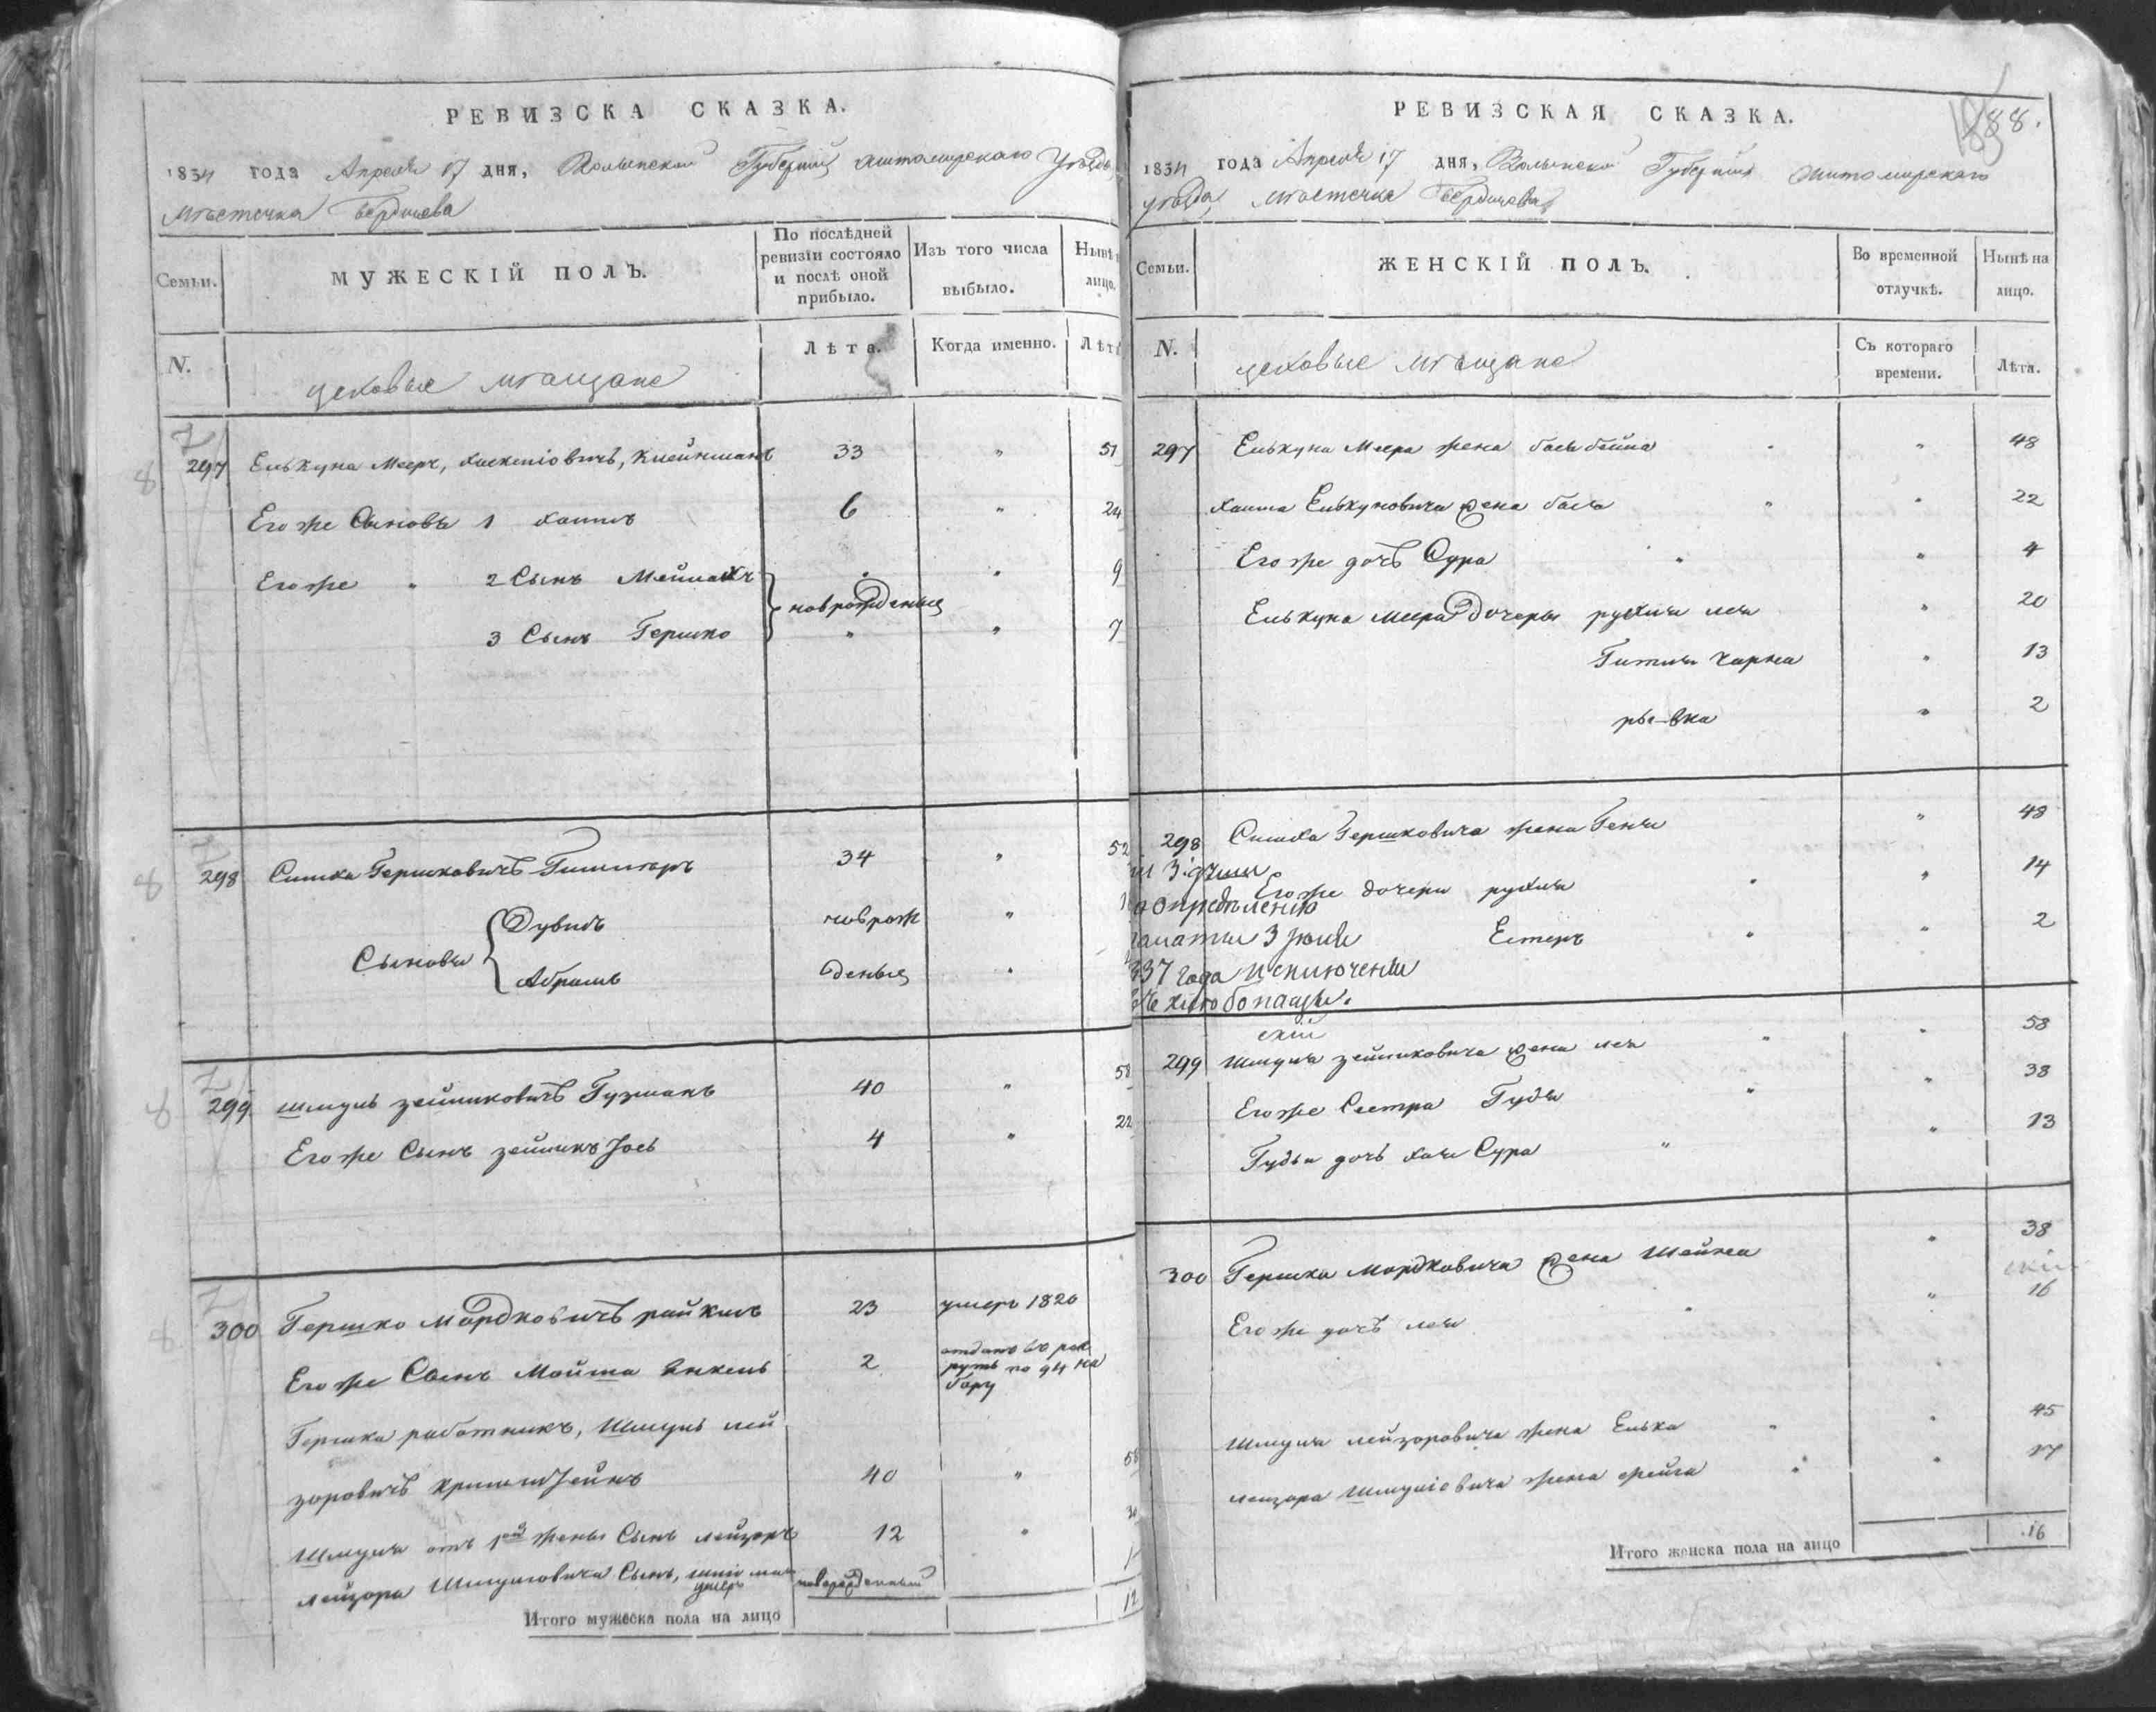 РЕВИЗСКА СКАЗКА.
1834 года Апреля 17 дня, Волынской Губерніи Житомирскаго Уѣзда,
Мѣстечка Бердичева
Семьи.
МУЖЕСКІЙ ПОЛЪ.
По послѣдней ревизіи состояло и послѣ оной прибыло.
Изъ того числа выбыло.
Нынѣ на лицо.
N.
цеховые мѣщане
Лѣта.
Когда именно.
Лѣта
297 Елькуна Меера, Хаскеліовичъ, Клейнманъ 33 " 51
Его же Сыновья 1 Хаимъ 6 " 24
Его же " 2 Сынъ Меймахъ " " 9
новрожденые
3 Сынъ Гершко " " 7
298 Симха Гершковичъ 34 " 52
Сыновья
Дувидъ новрож "
Абрамъ деныя "
299 Шмуль Зейликовичъ Гузманъ 40 " 58
Его же Сынъ Зейликъ Іось 4 " 22
300 Гершко Мордковичъ Райхелъ 23 умеръ 1826
Его же Сынъ Мойша Янкель 2 отданъ въ рек
рутъ по 94 на
бору
Гершка работникъ, Шмуль Лей
зоровичъ 40 " 58
Шмуля отъ 1ой жены Сынъ Лейзоръ 12 "
Лейзора Шмуліовича Сынъ, умеръ новорожденный
Итого мужеска пола на лицо 12
РЕВИЗСКАЯ СКАЗКА.
188.
1834 года Апреля 17 дня, Волынской Губерніи Житомирскаго
уѣзда, Мѣстечка Бердичева
Семьи.
ЖЕНСКІЙ ПОЛЪ.
Во временной отлучкѣ.
Нынѣ на лицо.
N.
цеховые мѣщане
Съ котораго времени.
Лѣта.
297 Елькуна Меера жена Бася Бейла " 48
Хаима Елькуновича жена Бася " 22
Его же дочь Сура " 4
Елькуна Меера дочеры Рухля Лея " 20
Гитля Чарна " 13
Рывка " 2
298 Симха Гершковича жена Геня " 48
Его же дочери Рухля " 14
Естеръ " 2
3 души
по опредѣленію
палаты 3 Іюля
837 года исключены
въ хлѣбопащи.
299 Шмуля Зейликовича жена Лея " 58
Его же Сестра Гудя " 38
Гудьи дочь Хая Сура " 13
300 Гершка Мордковича жена Шейна " 38
Его же дочь Лея " 16
Шмуля Лейзоровича жена Елька " 45
Лейзора Шмуліовича жена Фейга " 17
Итого женска пола на лицо 16